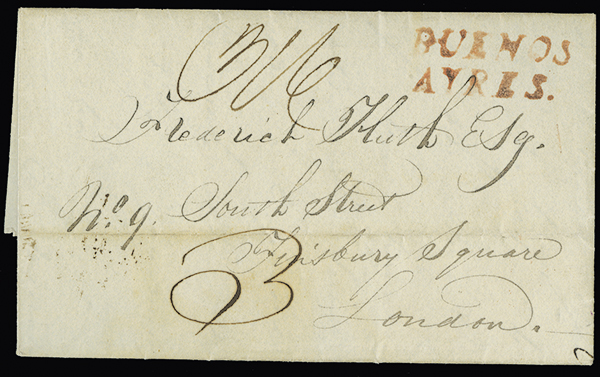 BUENOS
AYRES.
3/6
Frederick Huth Esq.
No. 9. South Street
Finsbury Square
London.
3